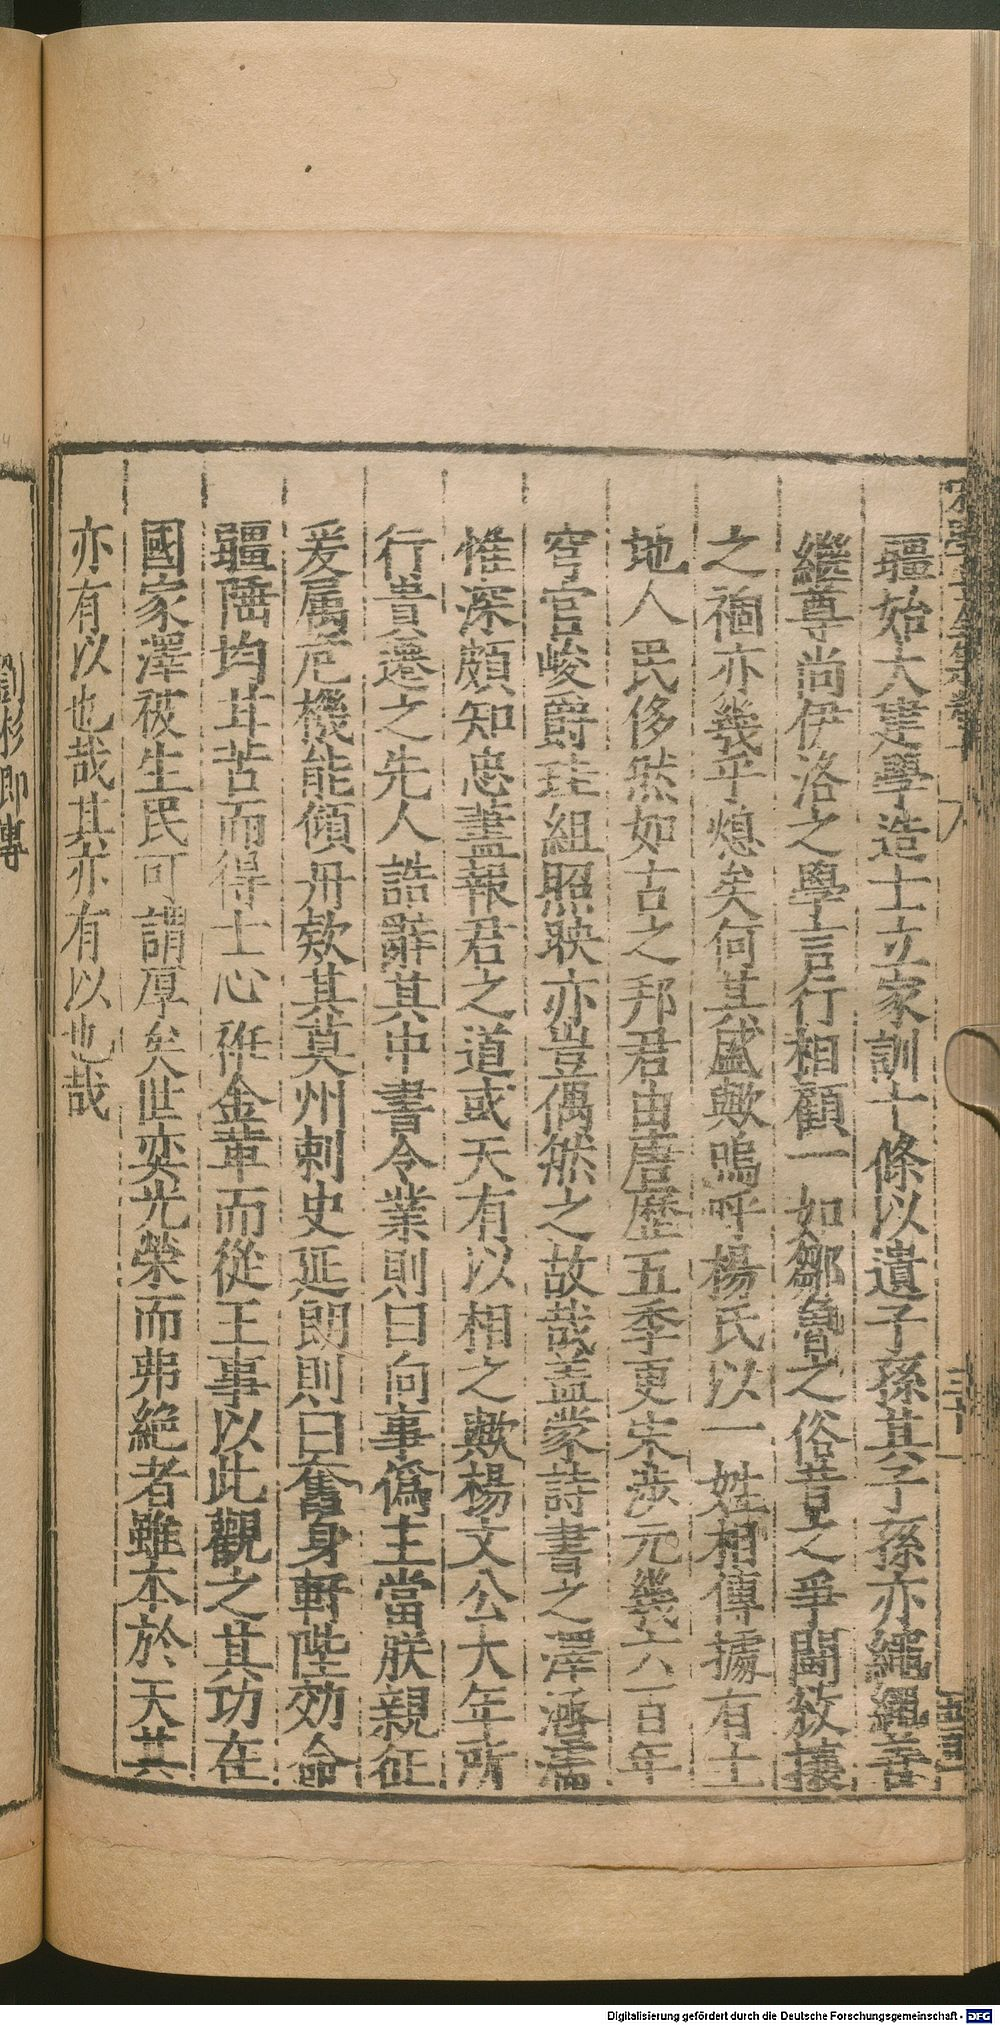 疆始大建學造士立家訓十條以遺子孫其子孫亦繩繩善
繼尊尚伊洛之學言行相顧一如鄒魯之俗昔之爭鬪敓攘
之禍亦幾乎熄矣何其盛歟嗚呼楊氏以一姓相傳據有土
地人民侈然如古之邦君由唐歷五季更宋涉元幾六百年
穹官峻爵珪組照映亦豈偶然之故哉盖蒙詩書之澤涵濡
惟深頗知忠藎報君之道或天有以相之歟楊文公大年所
行貴遷之先人誥辭其中書令業則曰向事僞主當朕親征
爰属危機能傾丹欵其莫州刺史延朗則曰奮身軒陛効命
疆陲均甘苦而得士心衽金革而從王事以此觀之其功在
國家澤被生民可謂厚矣世奕光榮而弗絶者雖本於天其
亦有以也哉其亦有以也哉
劉彬卿傳
Digitalisierung gefördert durch die Deutsche Forschungsgemeinschaft - DFG